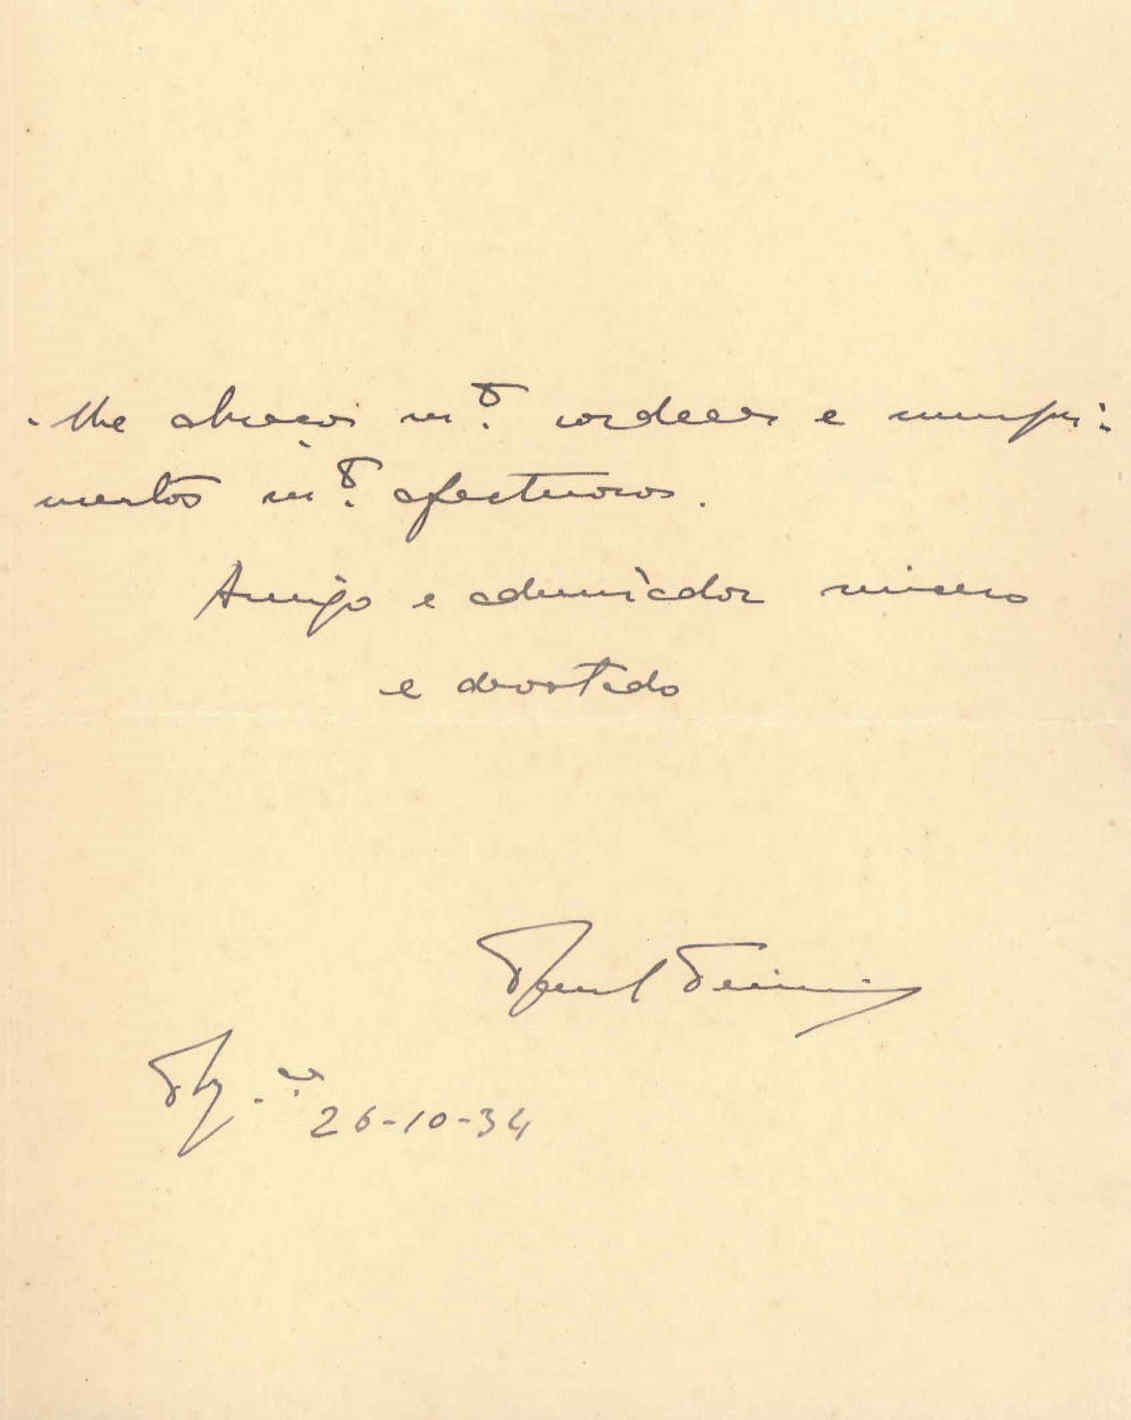 -lhe abraços m.to cordeaes e cumpri-
mentos m.to afectuosos.
Amigo e admirador sincero
e devotado
26-10-34